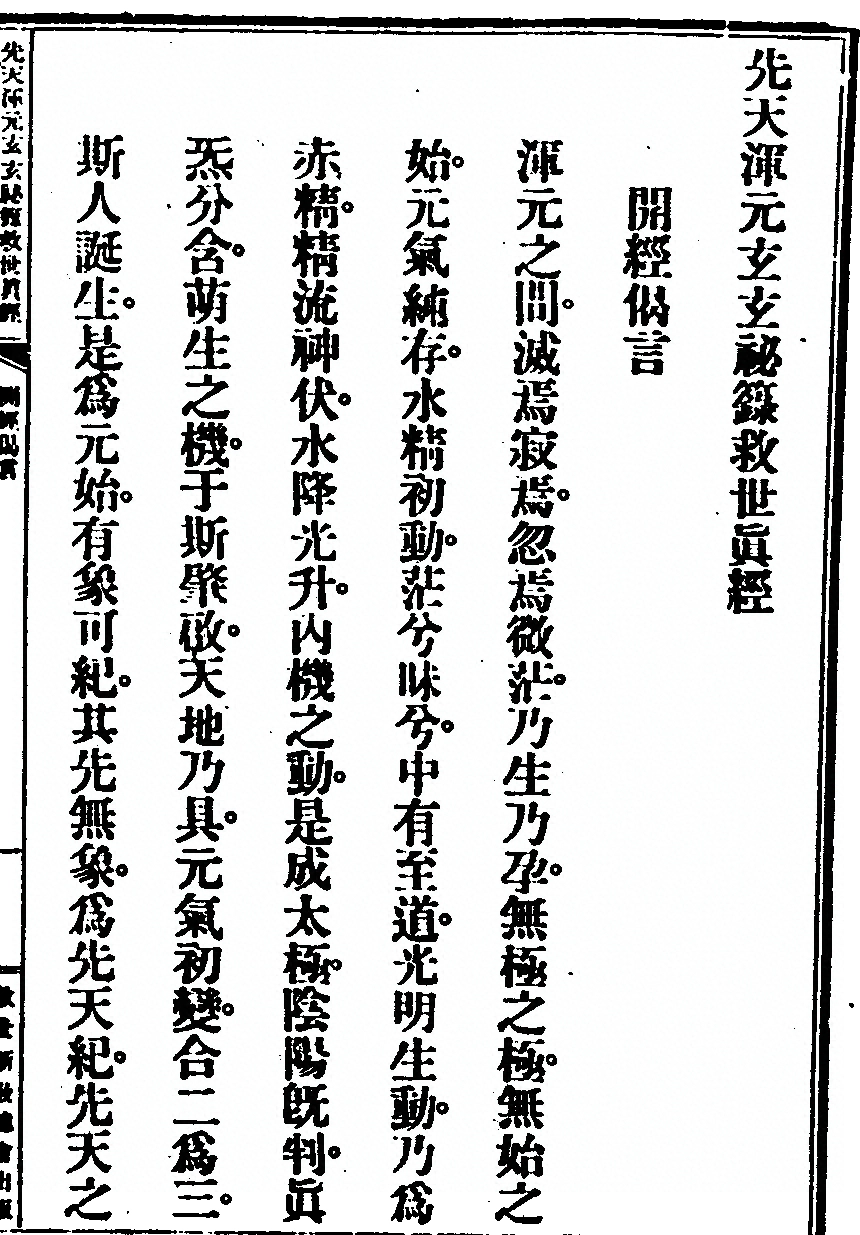 先天渾元玄玄祕籙救世眞經
開經偈言
渾元之間。滅焉寂焉。忽焉微茫。乃生乃孕。無極之極。無始之
始。元氣純存。水精初動。茫兮昧兮。中有至道。光明生動。乃爲
赤精。精流神伏。水降光升。內機之動。是成太極。陰陽既判。眞
炁分含。萌生之機。于斯肇啟。天地乃具。元氣初變。合二爲三。
斯人誕生。是爲元始。有象可紀。其先無象。爲先天紀。先天之
先天渾元玄玄祕籙救世眞經
開經偈言
救世新教總會出版